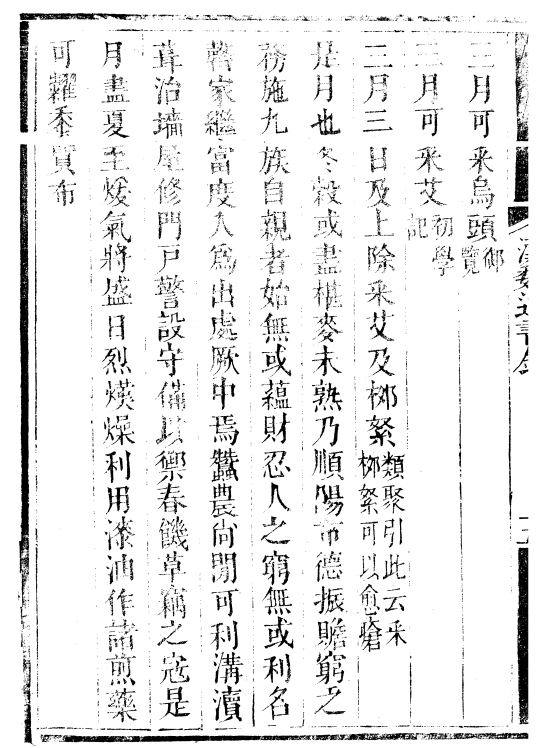 三月可采烏頭御覽
三月可采艾初學記
三月三日及上除采艾及柳絮類聚引此云采柳絮可以愈瘡
是月也冬穀或盡椹麥未熟乃順陽布德振贍窮乏
務施九族自親者始無或蘊財忍人之窮無或利名
罄家繼富度入為出處厥中焉蠶農尚閒可利溝瀆
葺治墻屋修門戶警設守備以禦春饑草竊之寇是
月盡夏至煖氣將盛日烈暵燥利用漆油作諸煎藥
可糶黍買布